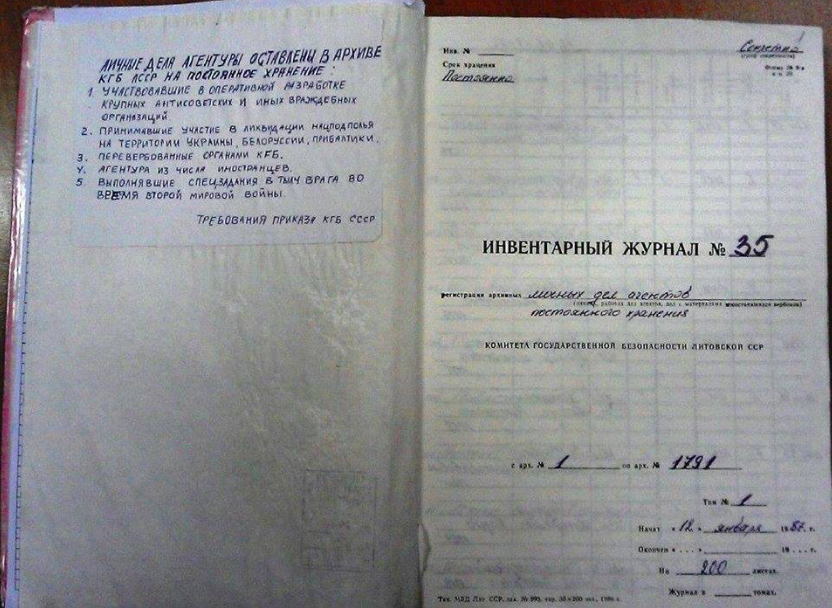 ЛИЧНЫЕ ДЕЛА АГЕНТУРЫ ОСТАВЛЕНЫ В АРХИВЕ
КГБ ЛССР НА ПОСТОЯННОЕ ХРАНЕНИЕ:
1. УЧАСТВОВАВШИЕ В ОПЕРАТИВНОЙ РАЗРАБОТКЕ
КРУПНЫХ АНТИСОВЕТСКИХ И ИНЫХ ВРАЖДЕБНЫХ
ОРГАНИЗАЦИЙ
2. ПРИНИМАВШИЕ УЧАСТИЕ В ЛИКВИДАЦИИ НАЦПОДПОЛЬЯ
НА ТЕРРИТОРИИ УКРАИНЫ, БЕЛОРУССИИ, ПРИБАЛТИКИ.
3. ПЕРЕВЕРБОВАННЫЕ ОРГАНАМИ КГБ.
4. АГЕНТУРА ИЗ ЧИСЛА ИНОСТРАНЦЕВ.
5. ВЫПОЛНЯВШИЕ СПЕЦЗАДАНИЯ В ТЫЛУ ВРАГА ВО
ВРЕМЯ ВТОРОЙ МИРОВОЙ ВОЙНЫ.
ТРЕБОВАНИЯ ПРИКАЗА КГБ СССР
Инв. №
Секретно
Срок хранения
Постоянно
Форма №
ИНВЕНТАРНЫЙ ЖУРНАЛ № 35
регистрации архивных личных дел агентов
постоянного хранения
КОМИТЕТА ГОСУДАРСТВЕННОЙ БЕЗОПАСНОСТИ ЛИТОВСКОЙ ССР
с арх. № 1 по арх. № 1791
Том № 1
Начат «12» января 1987 г.
Окончен «...» 19... г.
На 200 листах.
Журнал в томах.
Тип. МВД Лит. ССР, зак. № 1986 г.